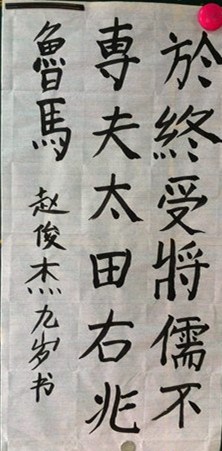 於終受將儒不
専夫太田右兆
魯馬
赵俊杰九岁书